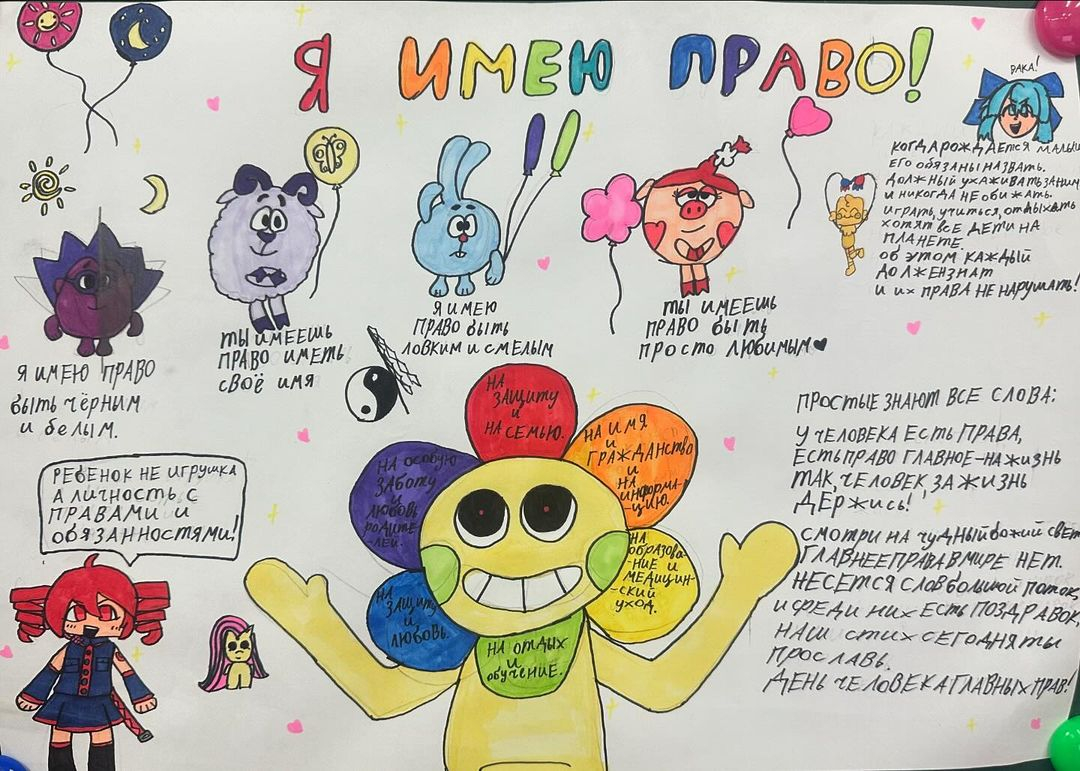 Я ИМЕЮ ПРАВО!
Я ИМЕЮ ПРАВО
быть чёрным
и белым.
ТЫ ИМЕЕШЬ
ПРАВО ИМЕТЬ
СВОЁ ИМЯ
Я ИМЕЮ
ПРАВО БЫТЬ
ЛОВКИМ И СМЕЛЫМ
ТЫ ИМЕЕШЬ
ПРАВО БЫТЬ
ПРОСТО ЛЮБИМЫМ
КОГДА РОЖДАЕТСЯ МАЛЫШ
ЕГО ОБЯЗАНЫ НАЗВАТЬ.
ДОЛЖНЫЙ УХАЖИВАТЬ ЗА НИМ
И НИКОГДА НЕ ОБИЖАТЬ.
ИГРАТЬ, УЧИТЬСЯ, ОТДЫХАТЬ
ХОТЯТ ВСЕ ДЕТИ НА
ПЛАНЕТЕ.
ОБ ЭТОМ КАЖДЫЙ
ДОЛЖЕН ЗНАТ
И ИХ ПРАВА НЕ НАРУШАТЬ!
РЕБЁНОК НЕ ИГРУШКА
А ЛИЧНОСТЬ С
ПРАВАМИ И
ОБЯЗАННОСТЯМИ!
НА
ЗАЩИТУ
И
НА СЕМЬЮ.
НА ИМЯ
И
ГРАЖДАНСТВО
И
НА
ИНФОРМА-
-ЦИЮ.
НА
ОБРАЗОВА-
-НИЕ И
МЕДИЦИН-
-СКИЙ
УХОД.
НА ОТДЫХ
И
ОБУЧЕНИЕ.
НА
ЗАЩИТУ
И
ЛЮБОВЬ.
НА ОСОБУЮ
ЗАБОТУ
И
ЛЮБОВЬ
РОДИТЕ-
-ЛЕЙ.
ПРОСТЫЕ ЗНАЮТ ВСЕ СЛОВА:
У ЧЕЛОВЕКА ЕСТЬ ПРАВА,
ЕСТЬ ПРАВО ГЛАВНОЕ - НА ЖИЗНЬ
ТАК, ЧЕЛОВЕК, ЗА ЖИЗНЬ
ДЕРЖИСЬ!
СМОТРИ НА ЧУДНЫЙ БОЖИЙ СВЕТ
ГЛАВНЕЕ ПРАВА В МИРЕ НЕТ.
НЕСЕТСЯ СЛОВ БОЛЬШОЙ ПОТОК,
И СРЕДИ НИХ ЕСТЬ ПОЗДРАВОК,
НАШ СТИХ СЕГОДНЯ ТЫ
ПРОСЛАВЬ.
ДЕНЬ ЧЕЛОВЕКА ГЛАВНЫХ ПРАВ!